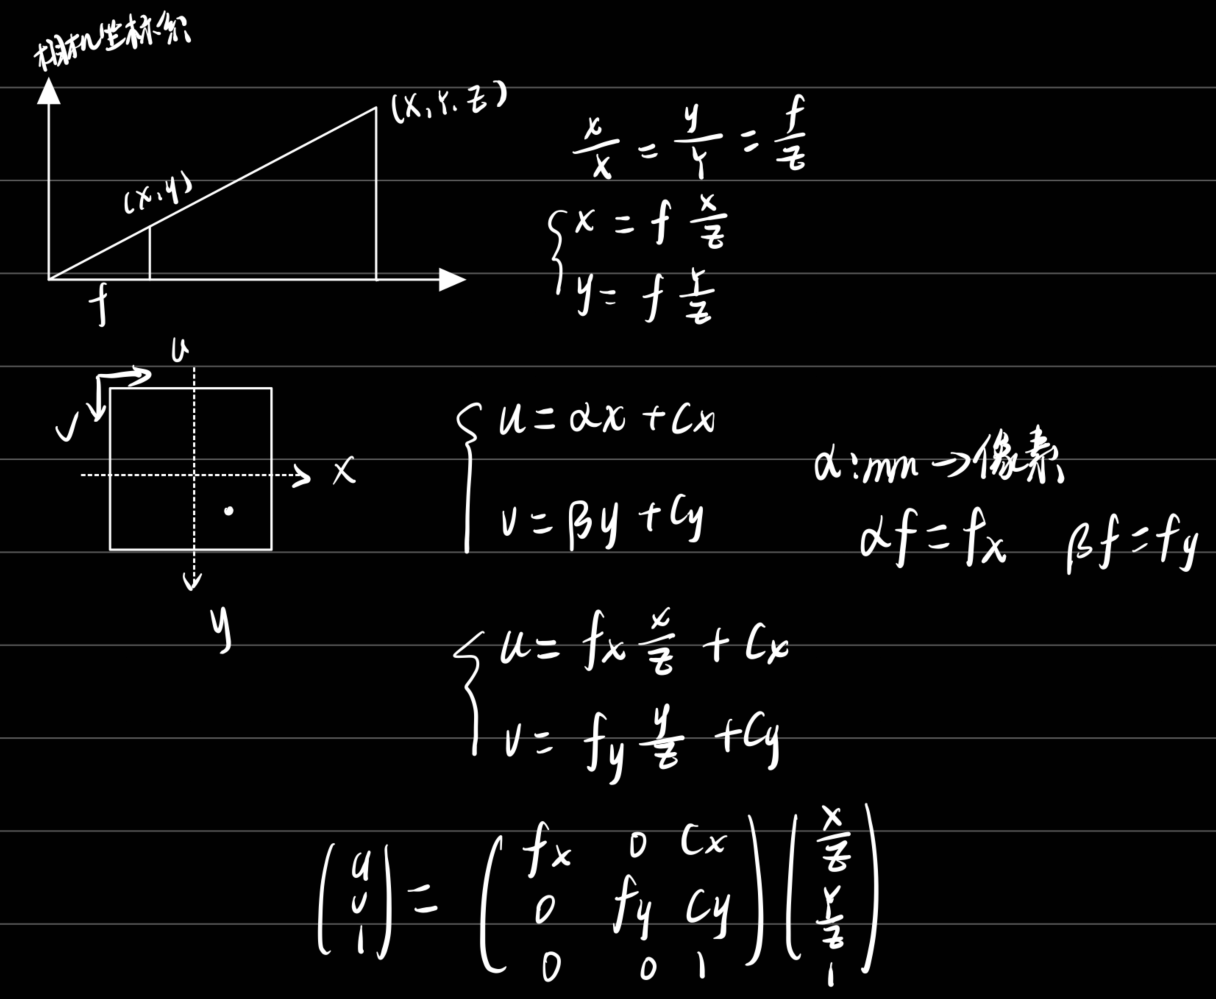 相机坐标系
(X,Y,Z)
(x,y)
f
x/X = y/Y = f/Z
{ x = f X/Z
y = f Y/Z
u
v
x
y
{ u = αx + Cx
v = βy + Cy
α:mm→像素
αf = fx βf = fy
{ u = fx X/Z + Cx
v = fy Y/Z + Cy
(u v 1) = (fx 0 Cx
0 fy Cy
0 0 1) (X/Z
Y/Z
1)